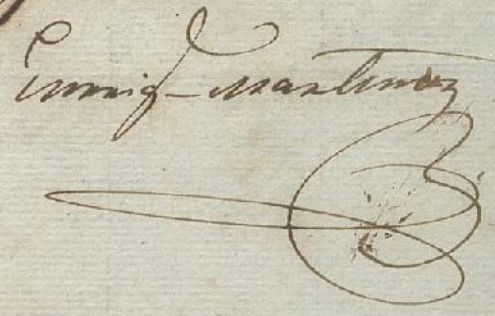 Enrriq Martinez